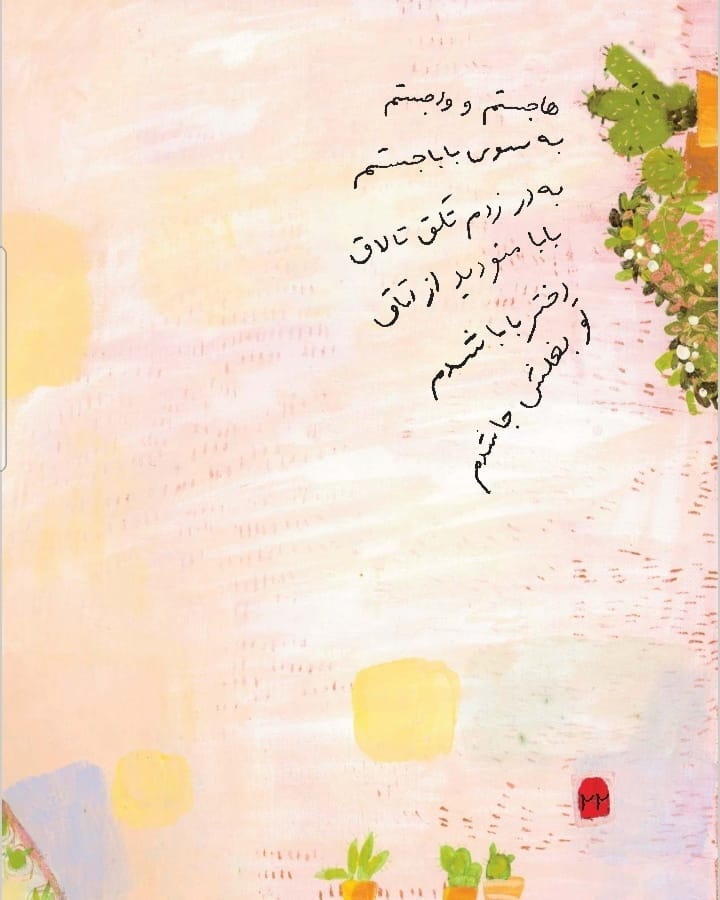 هاجستم و واجستم
به سوی بابا جستم
به در زدم تلق تالاق
بابا منو دید از اتاق
دختر بابا شدم
تو بغلش جا شدم
۲۲